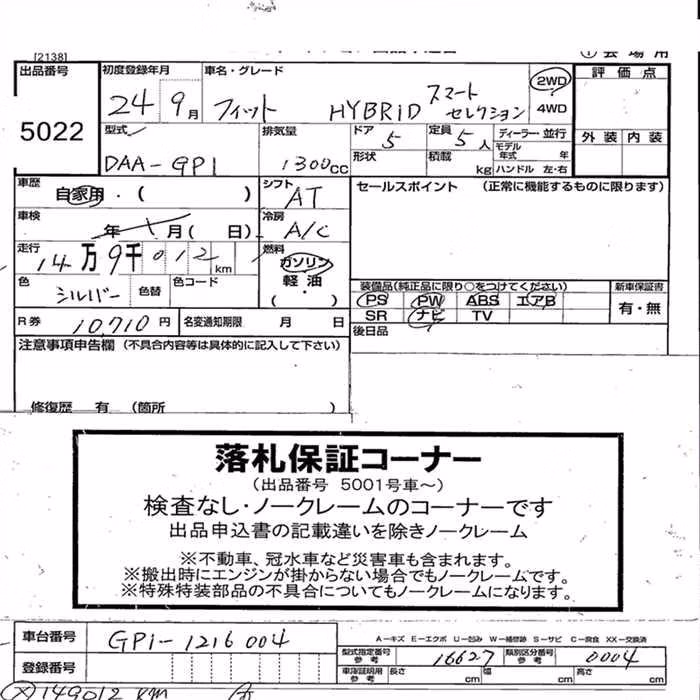 [2138]
出品番号 初度登録年月 車名・グレード 2WD 評価点
5022 24 9月 フィット HYBRID スマート セレクション 4WD
型式 排気量 ドア 定員 ディーラー・並行 外装 内装
DAA-GP1 1300cc 5 5人 モデル年式 年
形状 積載 kg ハンドル 左・右
車歴 自家用・( ) シフト AT セールスポイント (正常に機能するものに限ります)
車検 年 月( 日) 冷房 A/C
走行 14万9千012km 燃料 ガソリン 軽油 ・ ( )
色 シルバー 色替 色コード
装備品(純正品に限り○をつけてください) 新車保証書
PS PW ABS エアB 有・無
SR ナビ TV
R券 10,710円 名変通知期限 月 日 後日品
注意事項申告欄 (不具合内容等は具体的に記入して下さい)
修復歴 有 (箇所 )
落札保証コーナー
(出品番号 5001号車~)
検査なし・ノークレームのコーナーです
出品申込書の記載違いを除きノークレーム
※不動車、冠水車など災害車も含まれます。
※搬出時にエンジンが掛からない場合でもノークレームです。
※特殊特装部品の不具合についてもノークレームになります。
車台番号 GP1-1216004
A-キズ E-エクボ U-凹み W-補修跡 S-サビ C-腐食 XX-交換済
型式指定番号 参考 16627 類別区分番号 参考 0004
登録番号 車庫証明用 参考 長さ cm 幅 cm 高さ cm
149012km